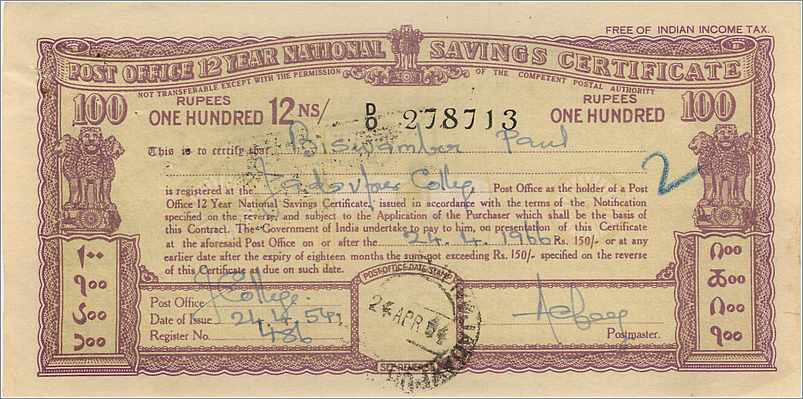 FREE OF INDIAN INCOME TAX.
POST OFFICE 12 YEAR NATIONAL SAVINGS CERTIFICATE
NOT TRANSFERABLE EXCEPT WITH THE PERMISSION OF THE COMPETENT POSTAL AUTHORITY
100 RUPEES ONE HUNDRED 12 NS/ D/D 278713 RUPEES ONE HUNDRED 100
This is to certify that Biswamber Paul
2
is registered at the Jadavpur College Post Office as the holder of a Post
Office 12 Year National Savings Certificate, issued in accordance with the terms of the Notification
specified on the reverse, and subject to the Application of the Purchaser which shall be the basis of
this Contract. The Government of India undertake to pay to him, on presentation of this Certificate
at the aforesaid Post Office on or after the 24.4.1966 Rs. 150/- or at any
earlier date after the expiry of eighteen months the sum not exceeding Rs. 150/- specified on the reverse
of this Certificate as due on such date.
Post Office J. College.
Date of Issue 24.4.54
Register No. 486
POST OFFICE DATE STAMP
24 APR 54
Postmaster.